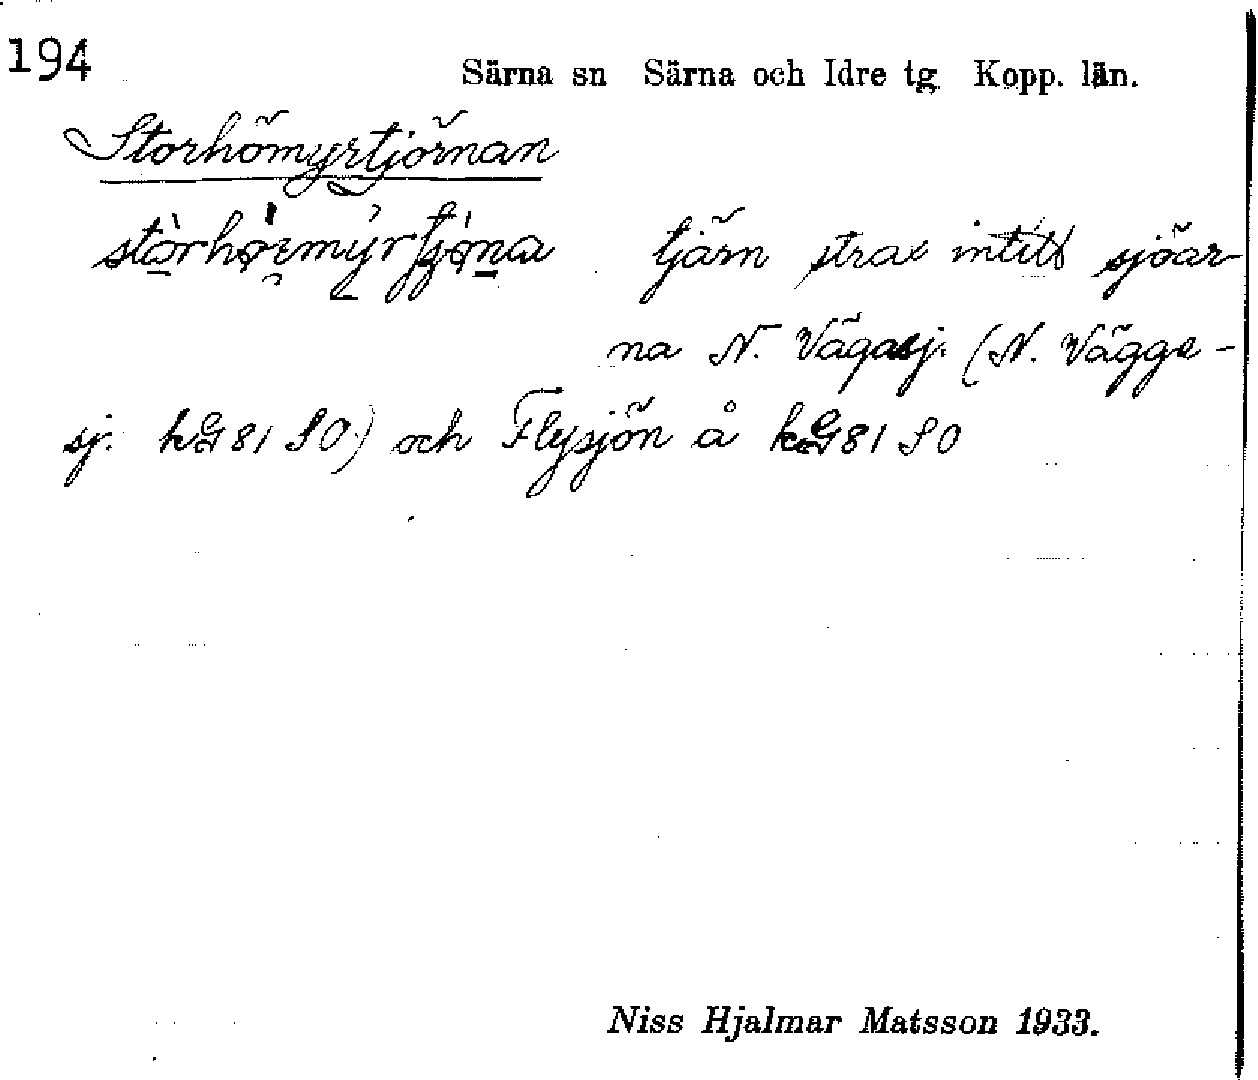 194
Särna sn Särna och Idre tg Kopp. län.
Storhömyrtjörnan
tjärn strax intill sjöar-
na N. Vågasj. (N. Vägge-
sj. kG81 SO) och Flysjön å kG81 SO
Niss Hjalmar Matsson 1933.